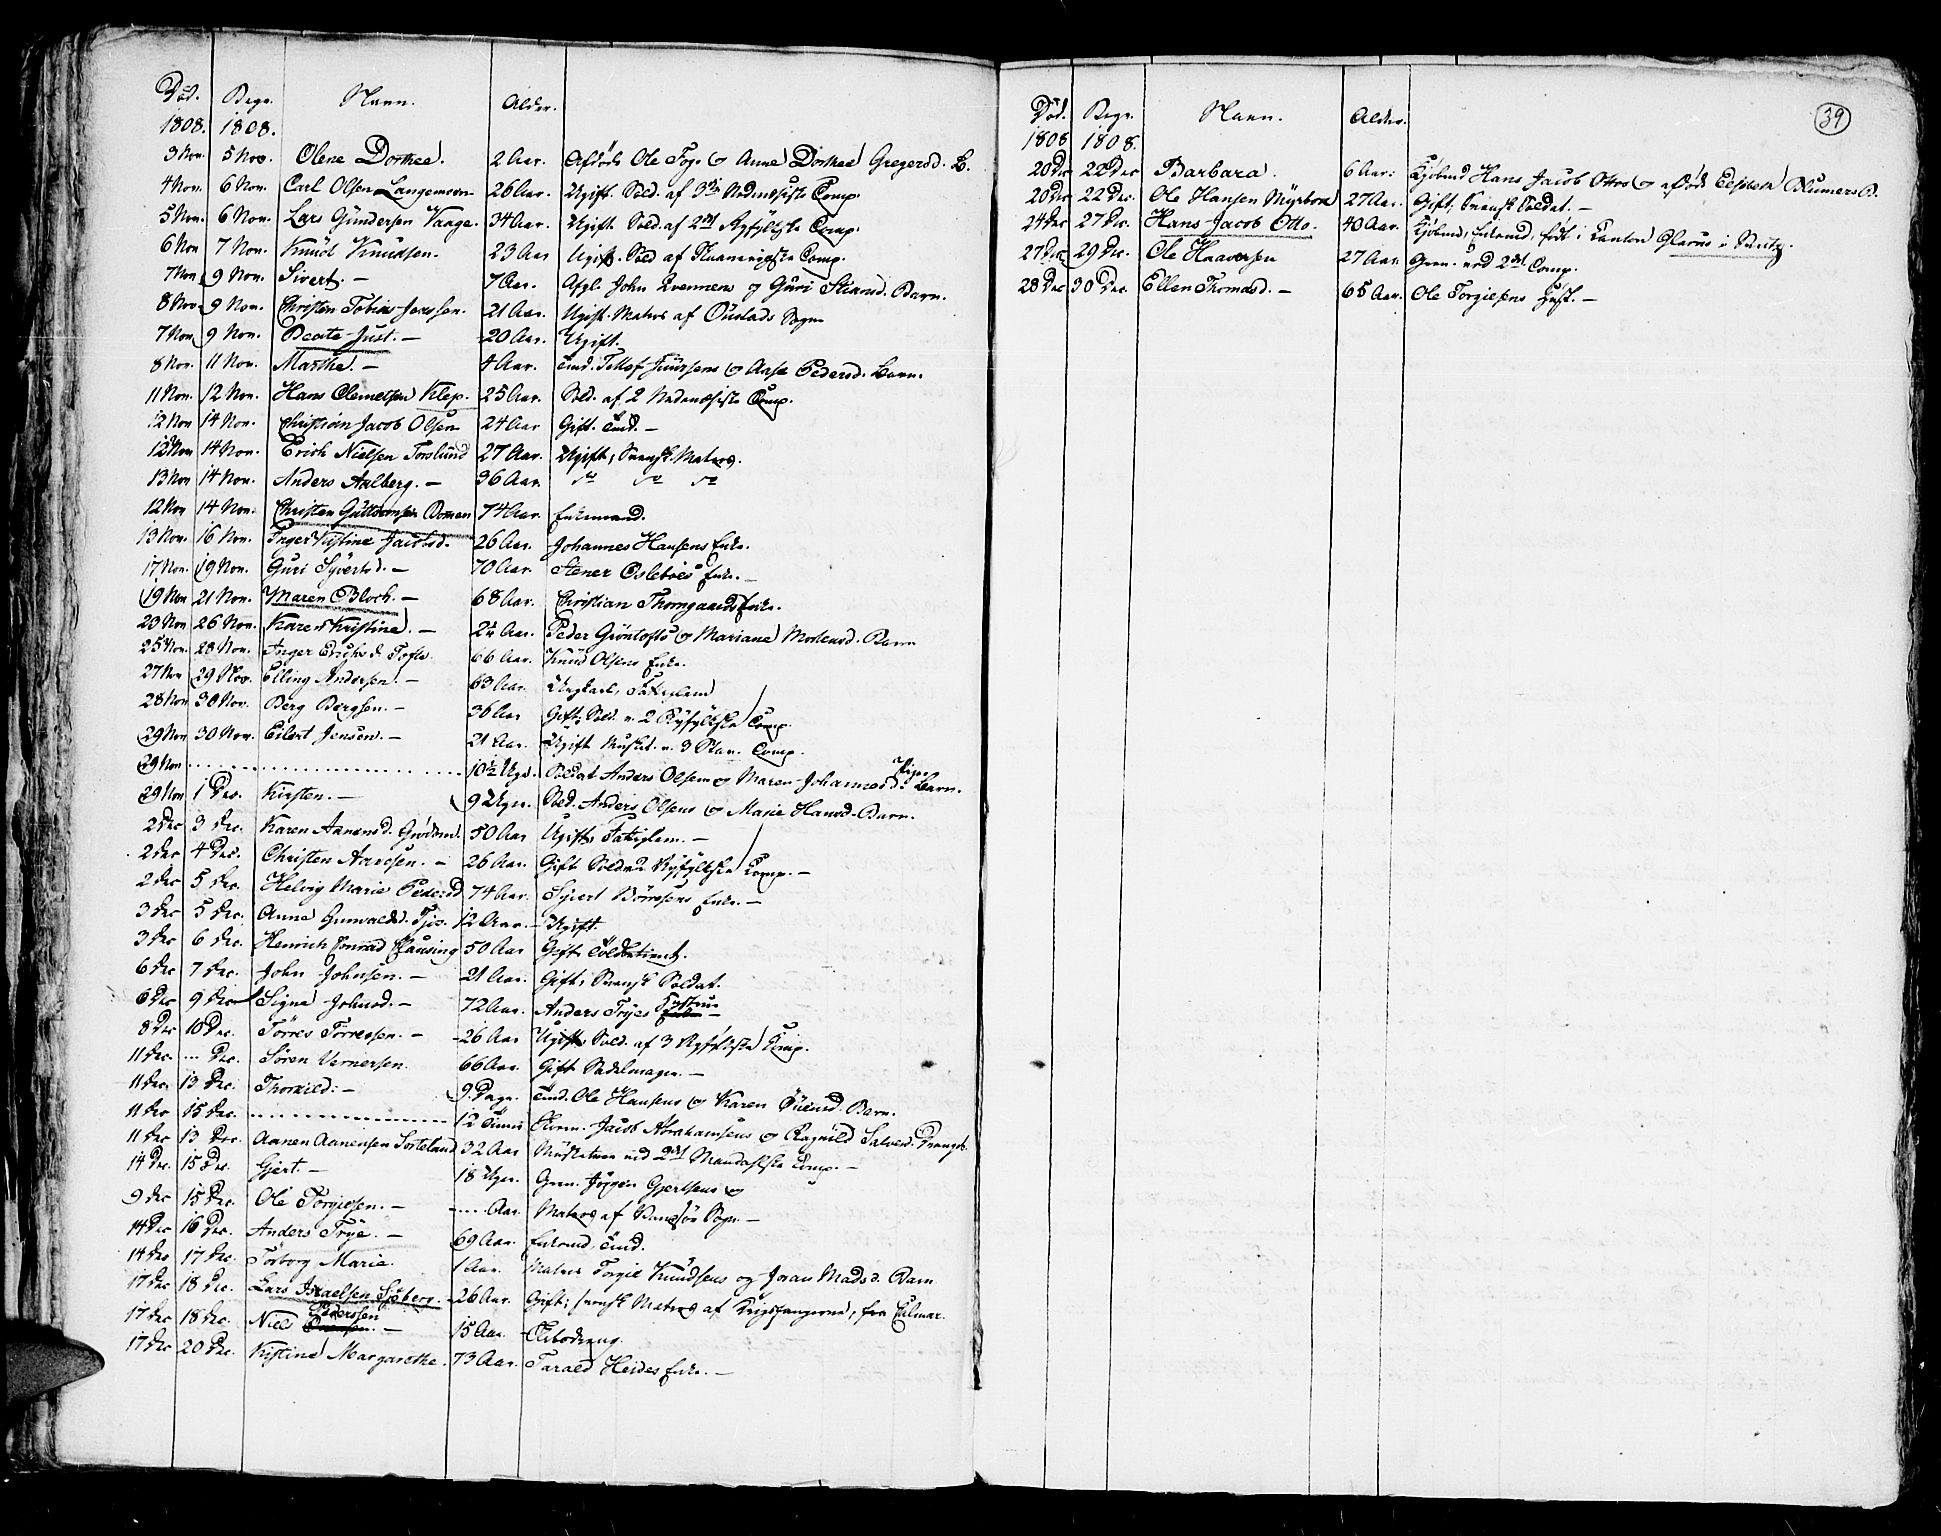 Död. Begr. Navn. Alder.
1808. 1808.
3 Nov. 5 Nov. Olene Dorthea. 2 Aar. Afdöde Ole Foge og Anne Dorthea Gregersd. B.
4 Nov. 6 Nov. Carl Olsen Langemoen 26 Aar. Ugift. Sold. af 3die Nedenesiske Comp.
5 Nov. 6 Nov. Lars Gündersen Vaage. 34 Aar. Ugift. Sold. af 2det Ryfylkske Comp.
6 Nov 7 Nov. Knüd Knüdsen. 23 Aar Ugift. Sold af Comp.
7 Nov 9 Nov. Sivert. – 7 Aar. Afgl. John Evennens og Güri Stiansd. Barn.
8 Nov 9 Nov. Christen Tobias Jonssen. 21 Aar. Ugift. Matros af Öiestads Sogn
7 Nov 9 Nov. Beate Just. – 20 Aar. Ugift.
8 Nov. 11 Nov. Marthe. – 4 Aar. Tmd. Tellef Jüürsens og Aase Pedersd. Barn.
11 Nov. 12 Nov. Hans Clemetsen Klep. 25 Aar. Sold. af 2 Nedenesiske Comp.
12 Nov 14 Nov. Christian Jacob Olsen 24 Aar Gift. Tmd. –
12 Nov 14 Nov. Erich Nielsen Forslund 27 Aar. Ugift, Svensk Matros.
13 Nov 14 Nov. Anders Aalberg. – 36 Aar. do do do
12 Nov 14 Nov. Christen Güttormsen Omen 74 Aar. Enkemand.
13 Nov. 16 Nov. Inger Kistine Jacobsd. 26 Aar. Johannes Hansens Enke.
17 Nov. 19 Nov. Güri Syversd. – 70 Aar. Stener Osleböes Enke. –
19 Nov 21 Nov. Maren Bloch. – 68 Aar. Christian Thomgaards Enke.
20 Nov 26 Nov. Karen Kristine. – 2½ Aar. Peder Gröntofts og Mariane Mortensd. Barn
25 Nov. 28 Nov. Inger Erichsd. Tofte 66 Aar. Knüd Olsens Enke.
27 Nov 29 Nov. Elling Andersen. – 63 Aar. Ungkarl, Fatiglem
28 Nov 30 Nov. Berg Bergsen. – 36 Aar Gift, Sold. v. 2 Ryfylkske Comp.
29 Nov 30 Nov. Eilert Jensen. – 21 Aar. Ugift Musket. v. 3 Stav. Comp.
29 Nov 10½ Uge. Soldat Anders Olsen og Maren Johannesd. Pige Barn.
29 Nov 1 Dec. Kirsten. – 9 Uger. Sold. Anders Olsens og Marie Hansd. Barn.
2 Dec 3 Dec. Karen Aanensd. Grödem. 50 Aar Ugift, Fatiglem. –
2 Dec 4 Dec. Christen Aanesen. – 26 Aar. Gift Sold. v. 2 Ryfylkske Comp. –
2 Dec 5 Dec. Helvig Marie Pedersd 74 Aar. Syvert Börresens Enke. –
3 Dec 5 Dec. Anne Gunvaldsd. 12 Aar. – Ugift.
3 Dec 6 Dec. Henrich Conrad Clausing 50 Aar Gift, Toldbetient.
6 Dec 7 Dec. John Johnsen. – 21 Aar. Gift, Svensk Soldat.
6 Dec 9 Dec Signe Johnsd. – 72 Aar. Anders Tryes Hustrue
8 Dec 10 Dec. Törres Törressen. – 26 Aar Ugift, Sold. af 3 Ryfylkske Comp.
11 Dec. ... Dec. Sören Vernersen. 66 Aar. Gift Sadelmager. –
11 Dec. 13 Dec. Thorkild. – 9 Dage. Tmd. Ole Hansens og Karen Öüensd. Barn.
11 Dec 15 Dec. 12 Timer Jacob Abrahamsens og Ragnild Salvesd. Drengeb.
11 Dec 13 Dec. Aanen Aanensen Sorteland 32 Aar Müsketeer ved 2det Mandalske Comp. –
14 Dec. 15 Dec. Gjert. – 18 Uger. Gren. Jörgen Gjertsens og
9 Dec 15 Dec. Ole Torgiessen. – .... Aar. Matros af Sogn –
14 Dec 16 Dec. Anders Trye. – 69 Aar. Enkemd. Tmd.
14 Dec 17 Dec. Torborg Marie. 1 Aar. Matros Torgie Knüdsens og Joran Madsd. Barn
17 Dec 18 Dec. Lars Israelsen Sjöberg. 26 Aar. Gift; svensk Matros af Krigsfangerne, fra Calmar.
17 Dec 18 Dec. Niels Pederssen – 15 Aar.
17 Dec 20 Dec. Kistine Margarethe. 73 Aar. Tarald Heides Enke. –
39
Död. Begr. Navn. Alder.
1808 1808.
20 Dec 22 Dec Barbara. 6 Aar: Kjöbmd Hans Jacob Ottos og afdöde Elsbeth Blumers B.
20 Dec 22 Dec. Ole Hansen Myrbore 27 Aar. Gift, Svensk Soldat. –
24 Dec 27 Dec. Hans Jacob Otto. 40 Aar. Kjöbmd, Enkemd, födt i Canton Glarus i Schutz.
27 Dec 29 Dec. Ole Haaversen 27 Aar. Gren. ved 2det Comp.
28 Dec 30 Dec. Ellen Thomasd. – 65 Aar. Ole Torgiesens Hust. –